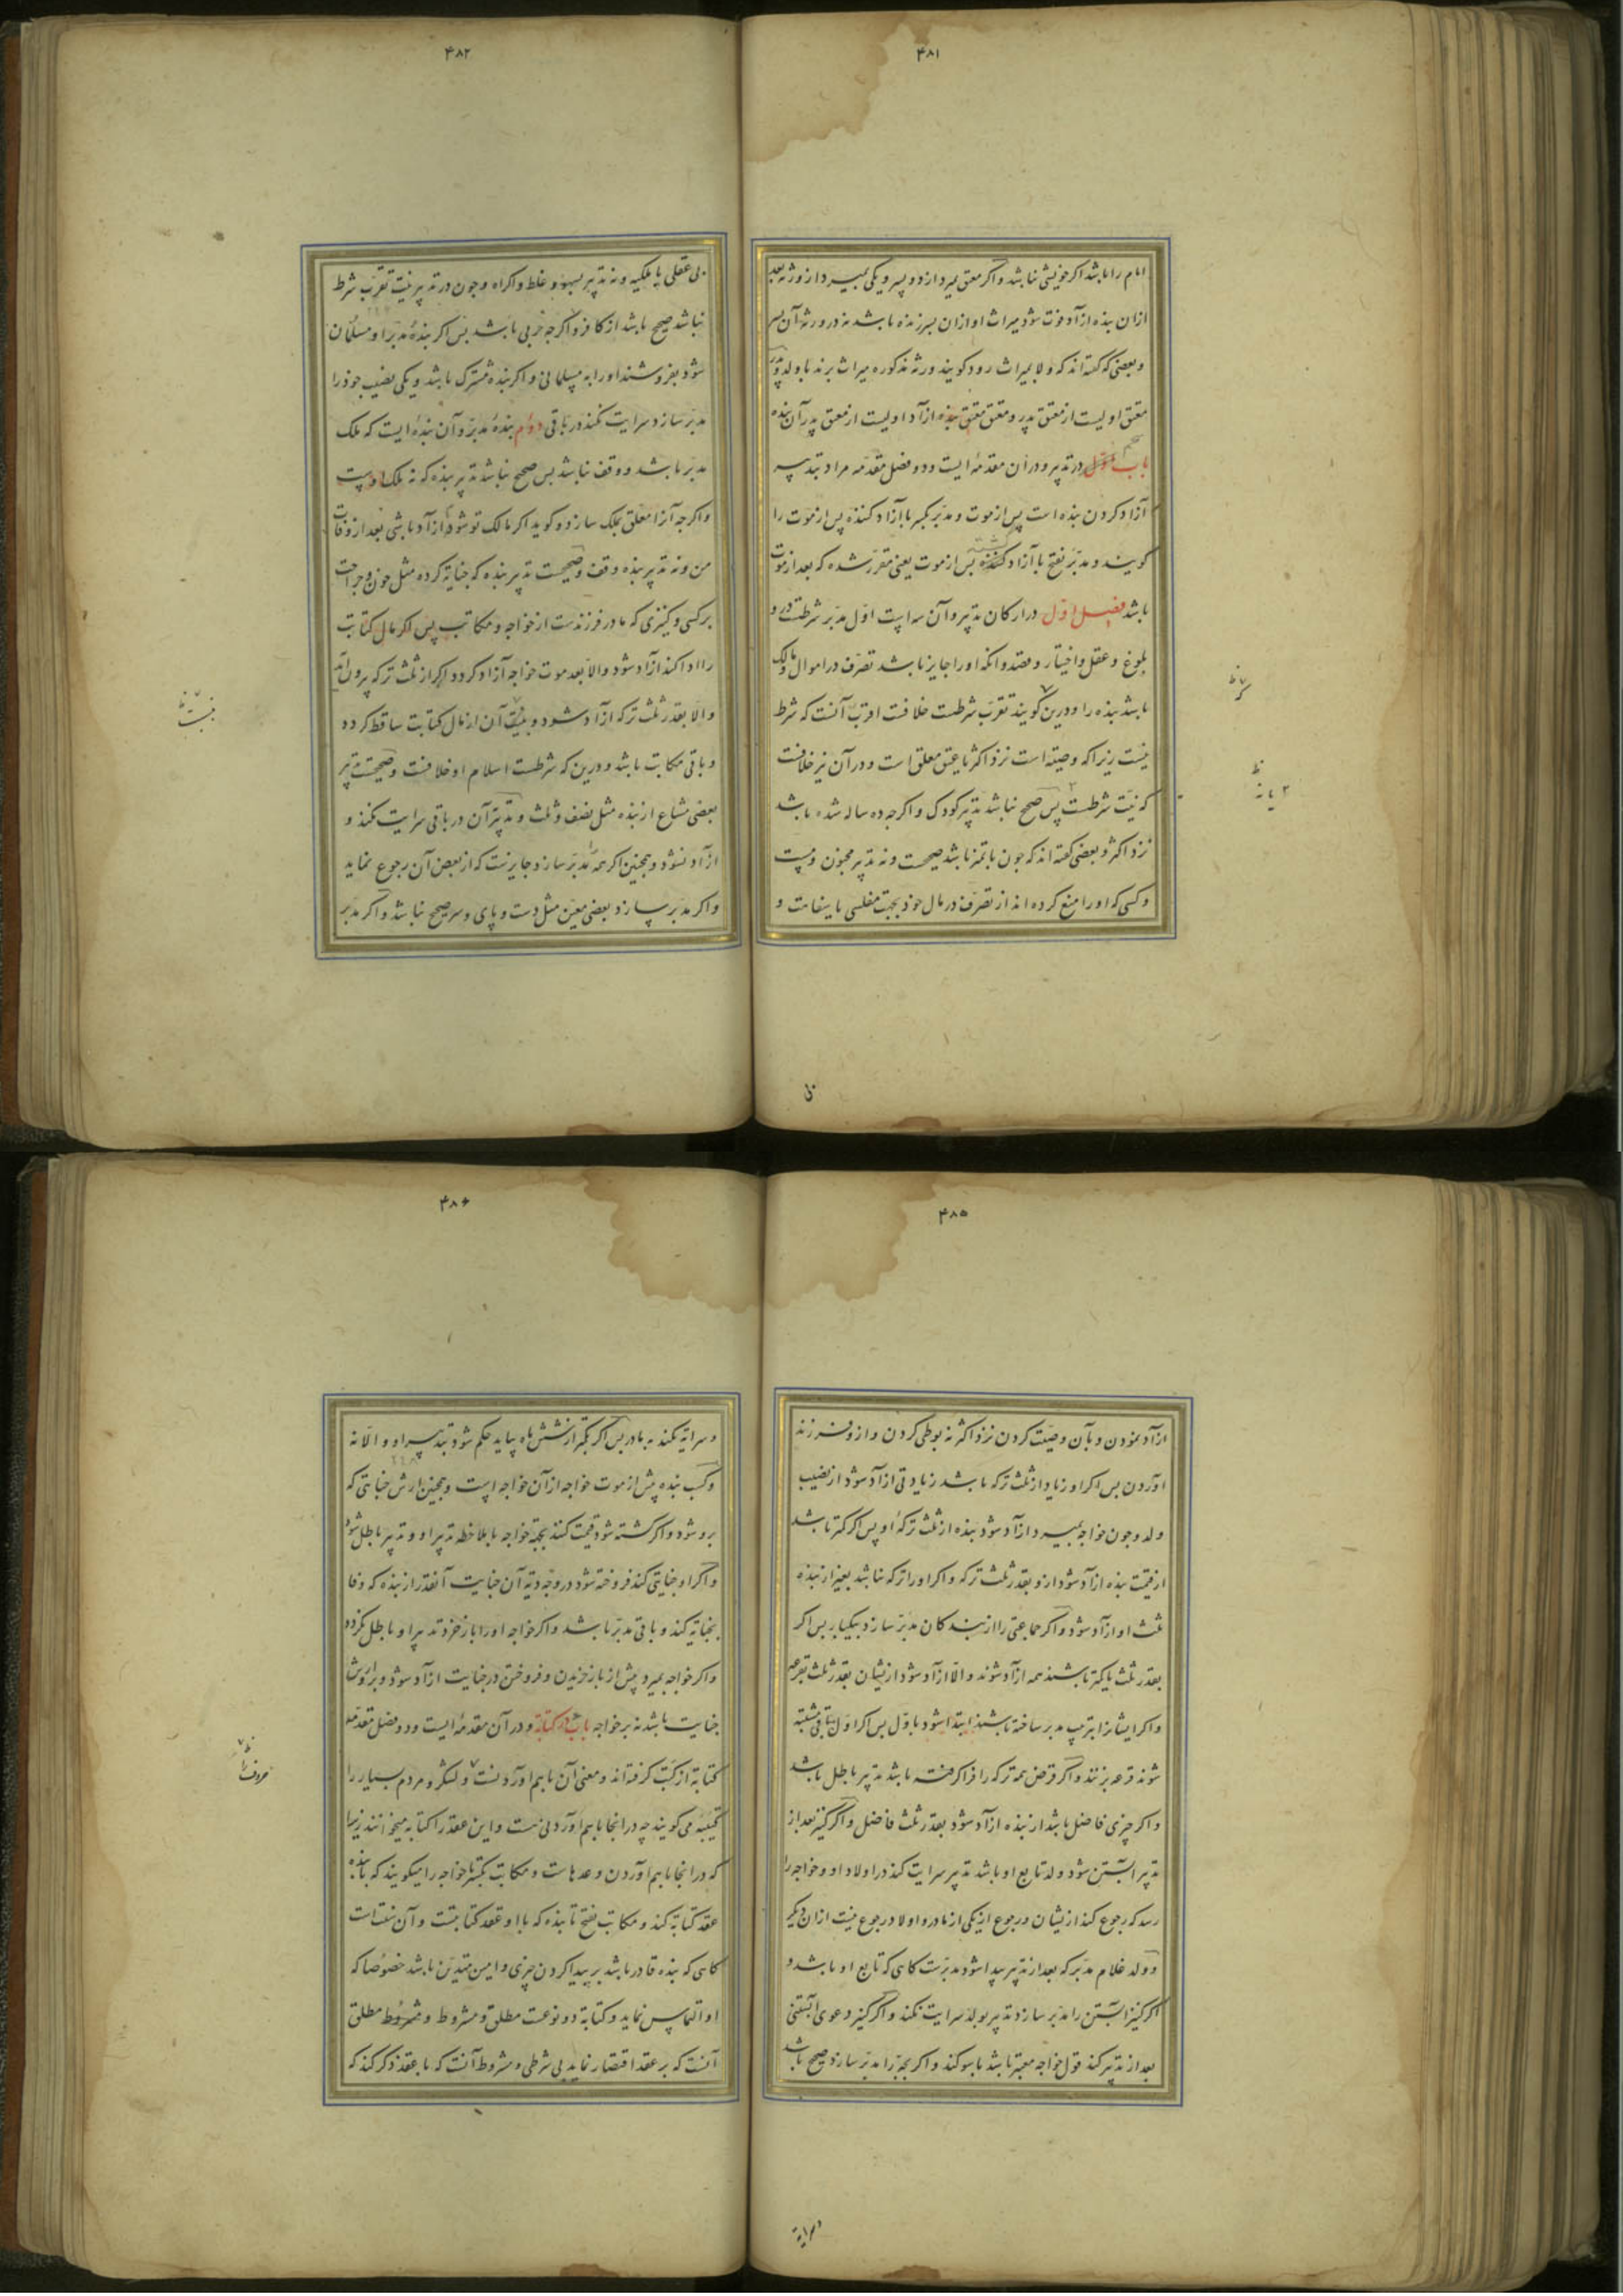 ۴۸۱
امام را باشد اگر خویشی نباشد و اگر معتق بمیرد از دو پسر و یکی بمیرد از ورثه بعد
ازان بنده ازآد فوت شود میراث او ازان پسر زنده باشد نه در ورثه آن پسر
و بعضی که گفته‌اند که ولا بمیراث رود گویند ورثه مذکوره میراث برند با ولد و پدر
معتق اولیست از معتق پدر و معتق معتق بنده ازآد اولیست از معتق پدر آن بنده
باب در تدبیر و دران مقدمهٔ ایست و دو فصل مقدمه مراد تدبیر
آزاد کردن بنده است پس از موت و مدبر بکسر با آزاد کننده پس از موت را
گویند و مدبر بفتح با آزاد کشته پس از موت یعنی مقرر شده که بعد از موت
باشد فصل اول در ارکان تدبیر و آن سه ایست اول مدبر شرطست درو
بلوغ و عقل و اختیار و قصد و انکه او را جایز باشد تصرف در اموال و مالک
باشد بنده را و درین گویند تقرب شرطست خلافست اقرب آنست که شرط
نیست زیرا که وصیتهٔ است نزد اکثر یا عتق معلق است و در آن نیز خلافست
که نیت شرطست پس صحیح نباشد تدبیر کودک و اگرچه ده ساله شده باشد
نزد اکثر و بعضی گفته‌اند که چون با تمیز باشد صحیحست و نه تدبیر مجنون و مست
و کسی که او را منع کرده‌اند از تصرف در مال خود بجهت مفلسی یا سفاهت و
۴۸۲
بی عقلی یا ملکیه و نه تدبیر بسهو و غلط و اکراه و چون در تدبیر نیت تقرب شرط
نباشد صحیح باشد از کافر و اگرچه حربی باشد پس اگر بندهٔ مدبر او مسلمان
شود بفروشند او را به مسلمانی و اگر بنده مشترک باشد و یکی نصیب خود را
مدبر سازد سرایت نکند در باقی دوم بندهٔ مدبر و آن بندهٔ ایست که ملک
مدبر باشد و وقف نباشد پس صحیح نباشد تدبیر بنده که نه ملک اوست
و اگرچه آنرا معلق بملک سازد و گوید اگر مالک تو شوم ازآد باشی بعد از وفات
من و نه تدبیر بنده وقف و صحیحست تدبیر بنده که جنایة کرده مثل خون و جراحت
بر کسی و کنیزی که مادر فرزندست از خواجه و مکاتب پس اگر مال کتابت
را ادا کند ازآد شود والا بعد موت خواجه آزاد گردد اگر از ثلث ترکه برون آید
والا بقدر ثلث ترکه ازآد شود و آن از مال کتابت ساقط گردد
و باقی مکاتب باشد و درین که شرطست اسلام او خلافست و صحیحست تدبیر
بعضی مشاع از بنده مثل نصف و ثلث و تدبیر آن در باقی سرایت نکند و
ازآد نشود و همچنین اگر همه را مدبر سازد جایزست که از بعض آن رجوع نماید
و اگر مدبر سازد بعضی معین مثل دست و پای و سر صحیح نباشد و اگر مدبر
۴۸۵
ازآد نمودن و بآن وصیت کردن نزد اکثر نه بوطی کردن و ازو فرزند
آوردن پس اگر او زیاد از ثلث ترکه باشد زیادتی ازآد شود از نصیب
ولد و چون خواجه بمیرد ازآد شود بنده از ثلث ترکهٔ او پس اگر کمتر باشد
از قیمت بنده ازآد شود ازو بقدر ثلث ترکه و اگر او را ترکه نباشد بغیر از بنده
ثلث او ازآد شود و اگر جماعتی را از بندگان مدبر سازد بیکبار پس اگر
بقدر ثلث یا کمتر باشند همه ازآد شوند والا ازآد شود از یشان بقدر ثلث بقرعه
و اگر ایشانرا بترتیب مدبر ساخته باشند ابتدا شود باول پس اگر اول باقی مشتبه
شوند قرعه بزنند و اگر قرض همه ترکه را فرا گرفته باشد تدبیر باطل باشد
و اگر چیزی فاضل باشد از بنده ازآد شود بقدر ثلث فاضل و اگر کنیز بعد از
تدبیر آبستن شود ولد تابع او باشد تدبیر سرایت کند در اولاد او و خواجه را
رسد که رجوع کند از یشان و رجوع از یکی از مادر و اولاد رجوع نیست ازان دیگر
و ولد غلام مدبر که بعد از تدبیر پیدا شود مدبرست گاهی که تابع او باشد و
اگر کنیز آبستن را مدبر سازد تدبیر بولد سرایت نکند و اگر کنیز دعوی آبستنی
بعد از تدبیر کند قول خواجه معتبر باشد با سوگند و اگر بچه را مدبر سازد صحیح باشد
۴۸۶
و سرایة نکند به مادر پس اگر بکمتر از شش ماه بیاید حکم شود بتدبیر او والا نه
و کسب بنده پیش از موت خواجه ازآن خواجه است و همچنین ارش جنایتی که
برو شود و اگر کشته شود قیمت کنند بجهة خواجه بملاحظه تدبیر او و تدبیر باطل شود
و اگر او جنایتی کند فروخته شود در وجه دیة آن جنایت آنقدر از بنده که وفا
بجنایة کند و باقی مدبر باشد و اگر خواجه او را باز خرد تدبیر او باطل نگردد
و اگر خواجه بمیرد پیش از باز خریدن و فروختن در جنایت ازآد شود و بر او ارش
جنایت باشد نه بر خواجه باب در کتابة و در آن مقدمهٔ ایست و دو فصل مقدمه
کتابة از کتب گرفته‌اند و معنی آن باهم آوردنست و لشکر و مردم بسیار را
کتیبه می‌گویند چه در انجا باهم آوردنی ست و این عقد را کتابه میخوانند زیرا
که در انجا باهم آوردن وعدهاست و مکاتب بکسر تا خواجه را میگویند که با بنده
عقد کتابة کند و مکاتب بفتح تا بنده که با او عقد کتابتست و آن سنت است
گاهی که بنده قادر باشد بر پیدا کردن چیزی و امین متدین باشد خصوصا که
او التماس نماید و کتابة دو نوعست مطلق و مشروط و مطلق
آنست که بر عقد اقتصار نماید بی شرطی و مشروط آنست که با عقد ذکر کند که